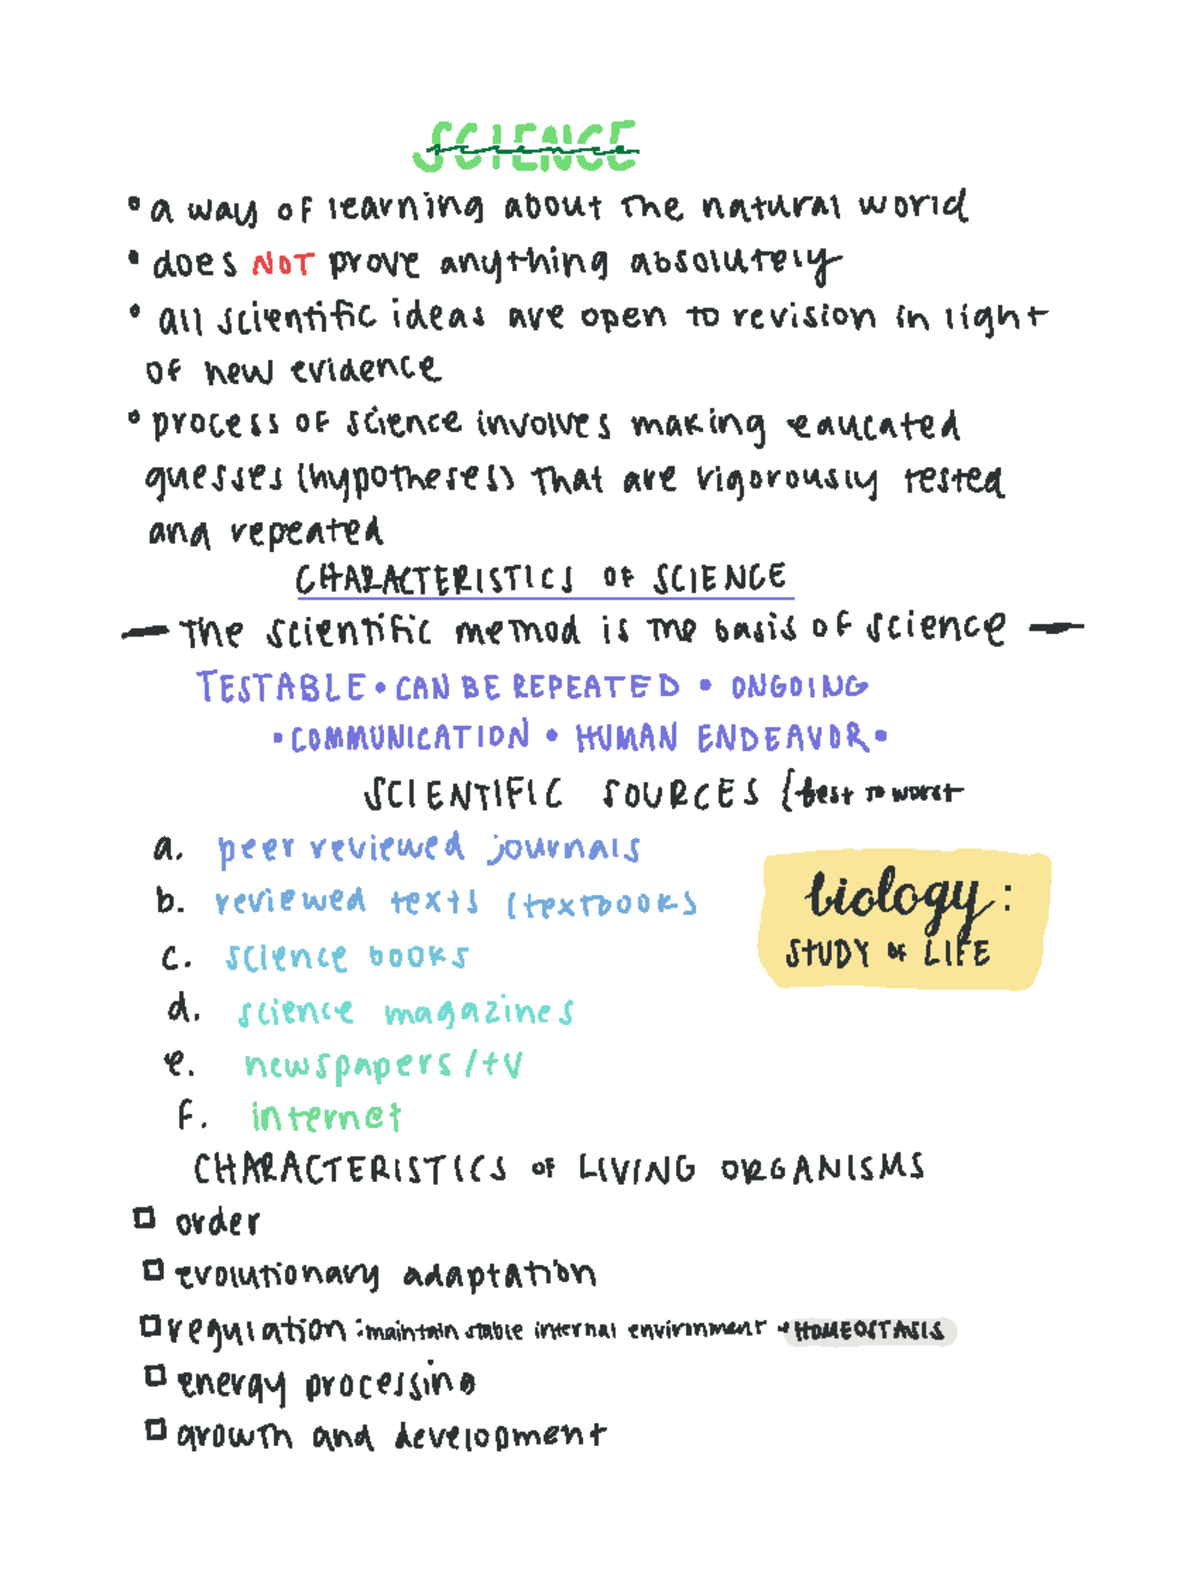 SCIENCE
science
• a way of learning about the natural world
• does NOT prove anything absolutely
• all scientific ideas are open to revision in light
of new evidence
• process of science involves making educated
guesses (hypotheses) that are vigorously tested
and repeated
CHARACTERISTICS OF SCIENCE
— The scientific method is the basis of science —
TESTABLE • CAN BE REPEATED • ONGOING
• COMMUNICATION • HUMAN ENDEAVOR •
SCIENTIFIC SOURCES (best to worst
a. peer reviewed journals
b. reviewed texts (textbooks
biology:
STUDY OF LIFE
c. science books
d. science magazines
e. newspapers/tv
f. internet
CHARACTERISTICS OF LIVING ORGANISMS
□ order
□ evolutionary adaptation
□ regulation: maintain stable internal environment → HOMEOSTASIS
□ energy processing
□ growth and development